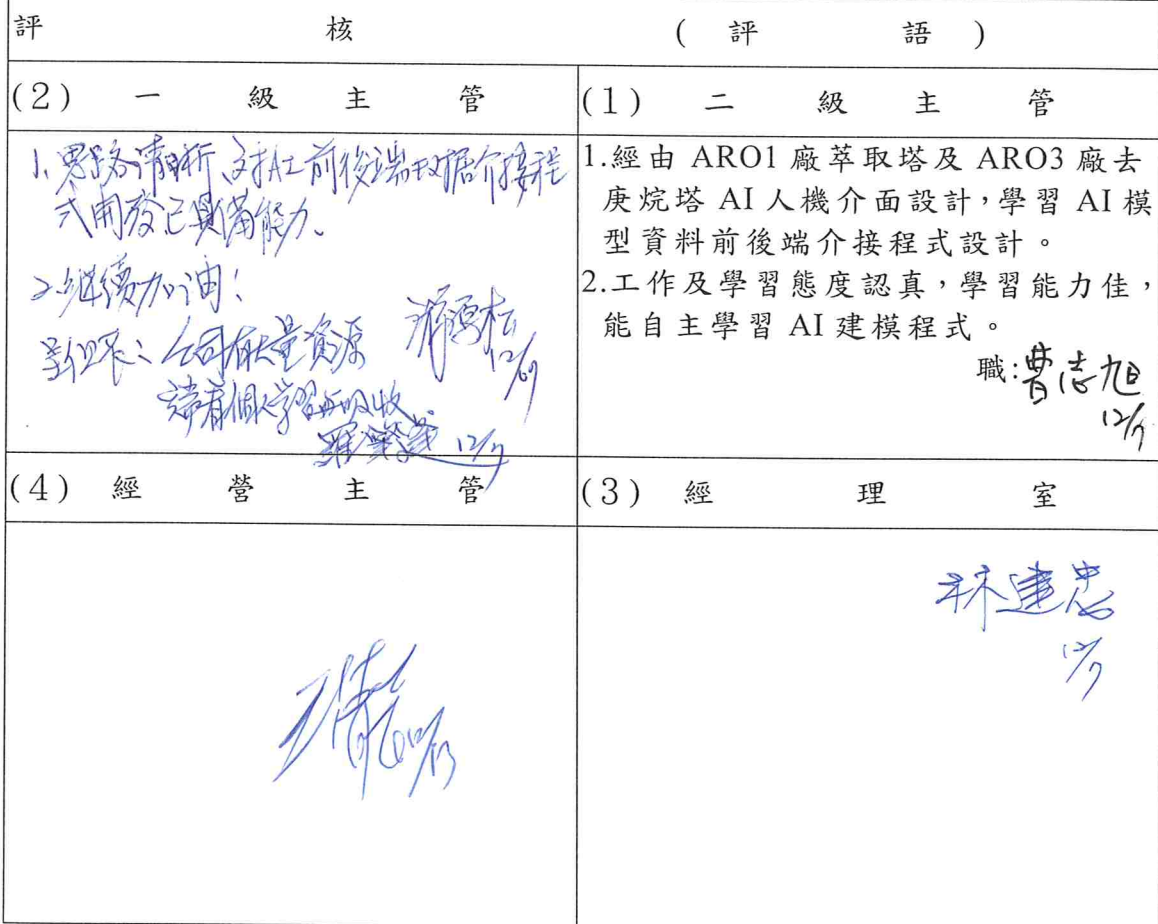 評 核 ( 評 語 )
(2) 一 級 主 管
(1) 二 級 主 管
1、思路清晰、對AI前後端數据介接程
式開發已具備能力。
2、繼續加油!
公司有大量資源
請看個人學習與吸收
12/7
12/9
1.經由 ARO1 廠萃取塔及 ARO3 廠去
庚烷塔 AI 人機介面設計,學習 AI 模
型資料前後端介接程式設計。
2.工作及學習態度認真,學習能力佳,
能自主學習 AI 建模程式。
職:曹志旭
12/7
(4) 經 營 主 管
(3) 經 理 室
12/13
林建忠
12/7